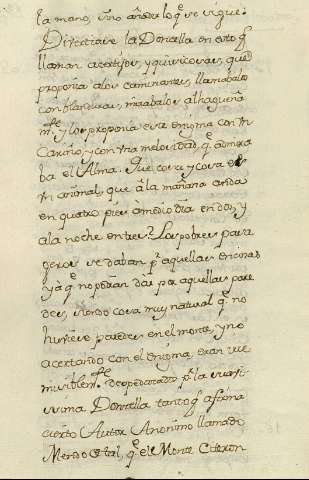 la mano, sino añade lo q̃ se sigue.
Divertiase la Doncella en esto q̃
llaman acertijos, y quisicosas, que
proponia a los caminantes, llamabalos
con blanduras, mirabalos alhagueña
m.te y les proponia este enigma con un
Cariño, y con una melosidad, q̃
ba el Alma. Que cosa y cosa es
un animal, que à la mañana anda
en quatro pies, à medio dia en dos, y
a la noche en tres? Los pobres pasa
geros se daban p.r aquellas encinas
yà q̃ no podian dar por aquellas pare
des, siendo cosa muy natural q̃ no
huviese paredes en el monte, y no
acertando con el enigma, eran
despedazados p.r la
sima Doncella tanto q̃ afirma
cierto Autor Anonimo llamado
Mendo q̃ el Monte Citeron